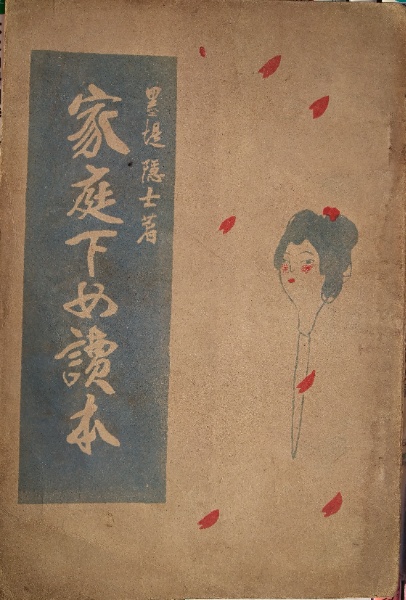 墨堤隱士著
家庭下女讀本